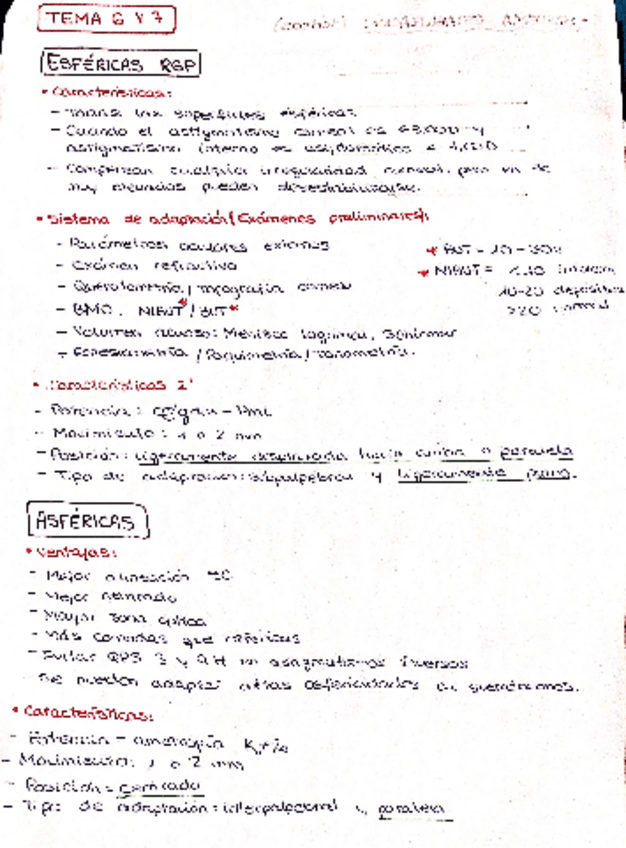 TEMA 6 Y 7
ESFÉRICAS RGP
• Características:
- superficies esféricas
- Cuando el astigmatismo corneal es y
astigmatismo interno es
- Compensan cualquier irregularidad corneal, pero
muy elevadas pueden desestabilizarse.
• Sistema de adaptación (Exámenes preliminares):
- Parámetros oculares externos
* BUT = 10-30s
- Exámen refractivo
* NIBUT = <10
- Queratometría / Topografía corneal
10-20
- BMO, NIBUT* / BUT*
>20 normal
- Volumen lagrimal: Menisco lagrimal, Schirmer
- / Paquimetría / Tonometría.
• Características 2ª
- Potencia:
- Movimiento: 1 o 2 mm
- Posición: ligeramente desplazada hacia arriba o paralela
- Tipo de adaptación: y ligeramente plana.
ASFÉRICAS
• Ventajas:
- Mejor alineación
- Mejor centrado
- Mayor zona óptica
- Más cómodas que esféricas
- Evitar 3 y 9 H en astigmatismos inversos
- Se pueden adaptar altas asfericidades en queratoconos.
• Características:
- Potencia = ametropía
- Movimiento: 1 o 2 mm
- Posición = centrada
- Tipo de adaptación: interpalpebral y paralela